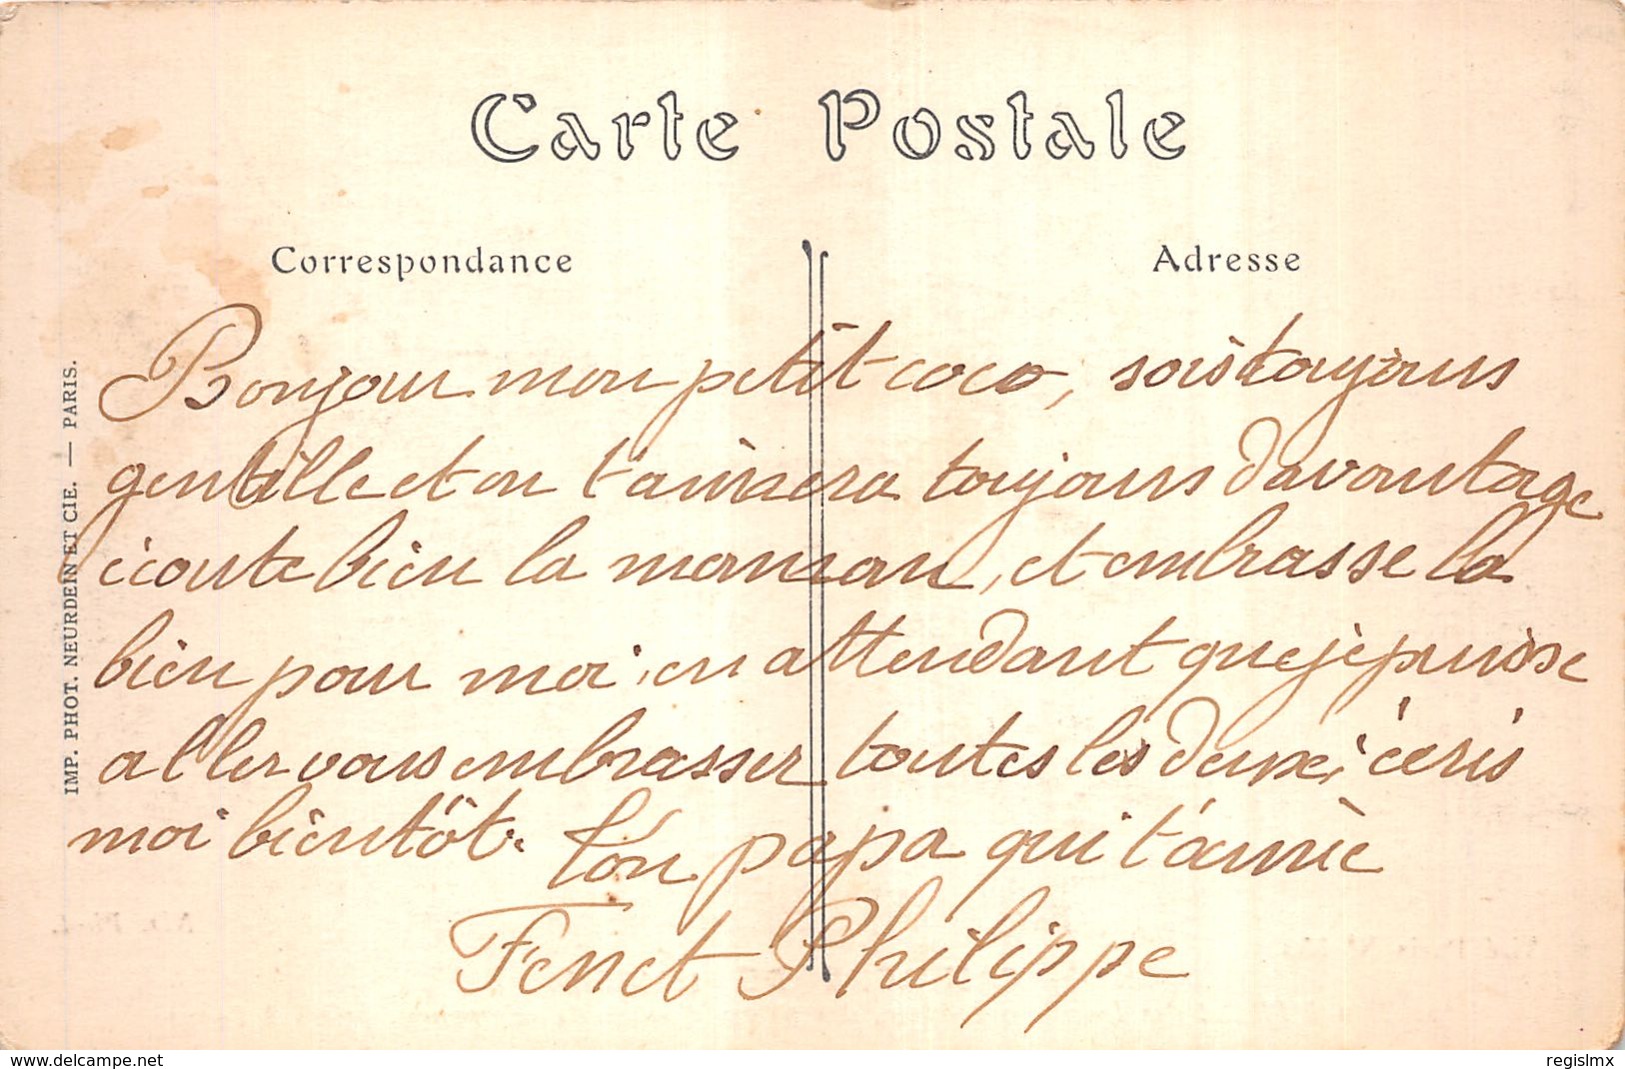 Carte Postale
Correspondance
Adresse
IMP. PHOT. NEURDEIN ET CIE. — PARIS.
Bonjour mon petit coco, sois toujours
gentille et on t'aimera toujours davantage
écoute bien la maman, et embrasse la
bien pour moi, en attendant que je puisse
aller vous embrasser toutes les deux, écris
moi bientôt. Ton papa qui t'aime
Fenet Philippe
delcampe.net
regislmx